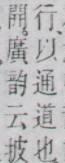 行以通道也
開廣韵云披